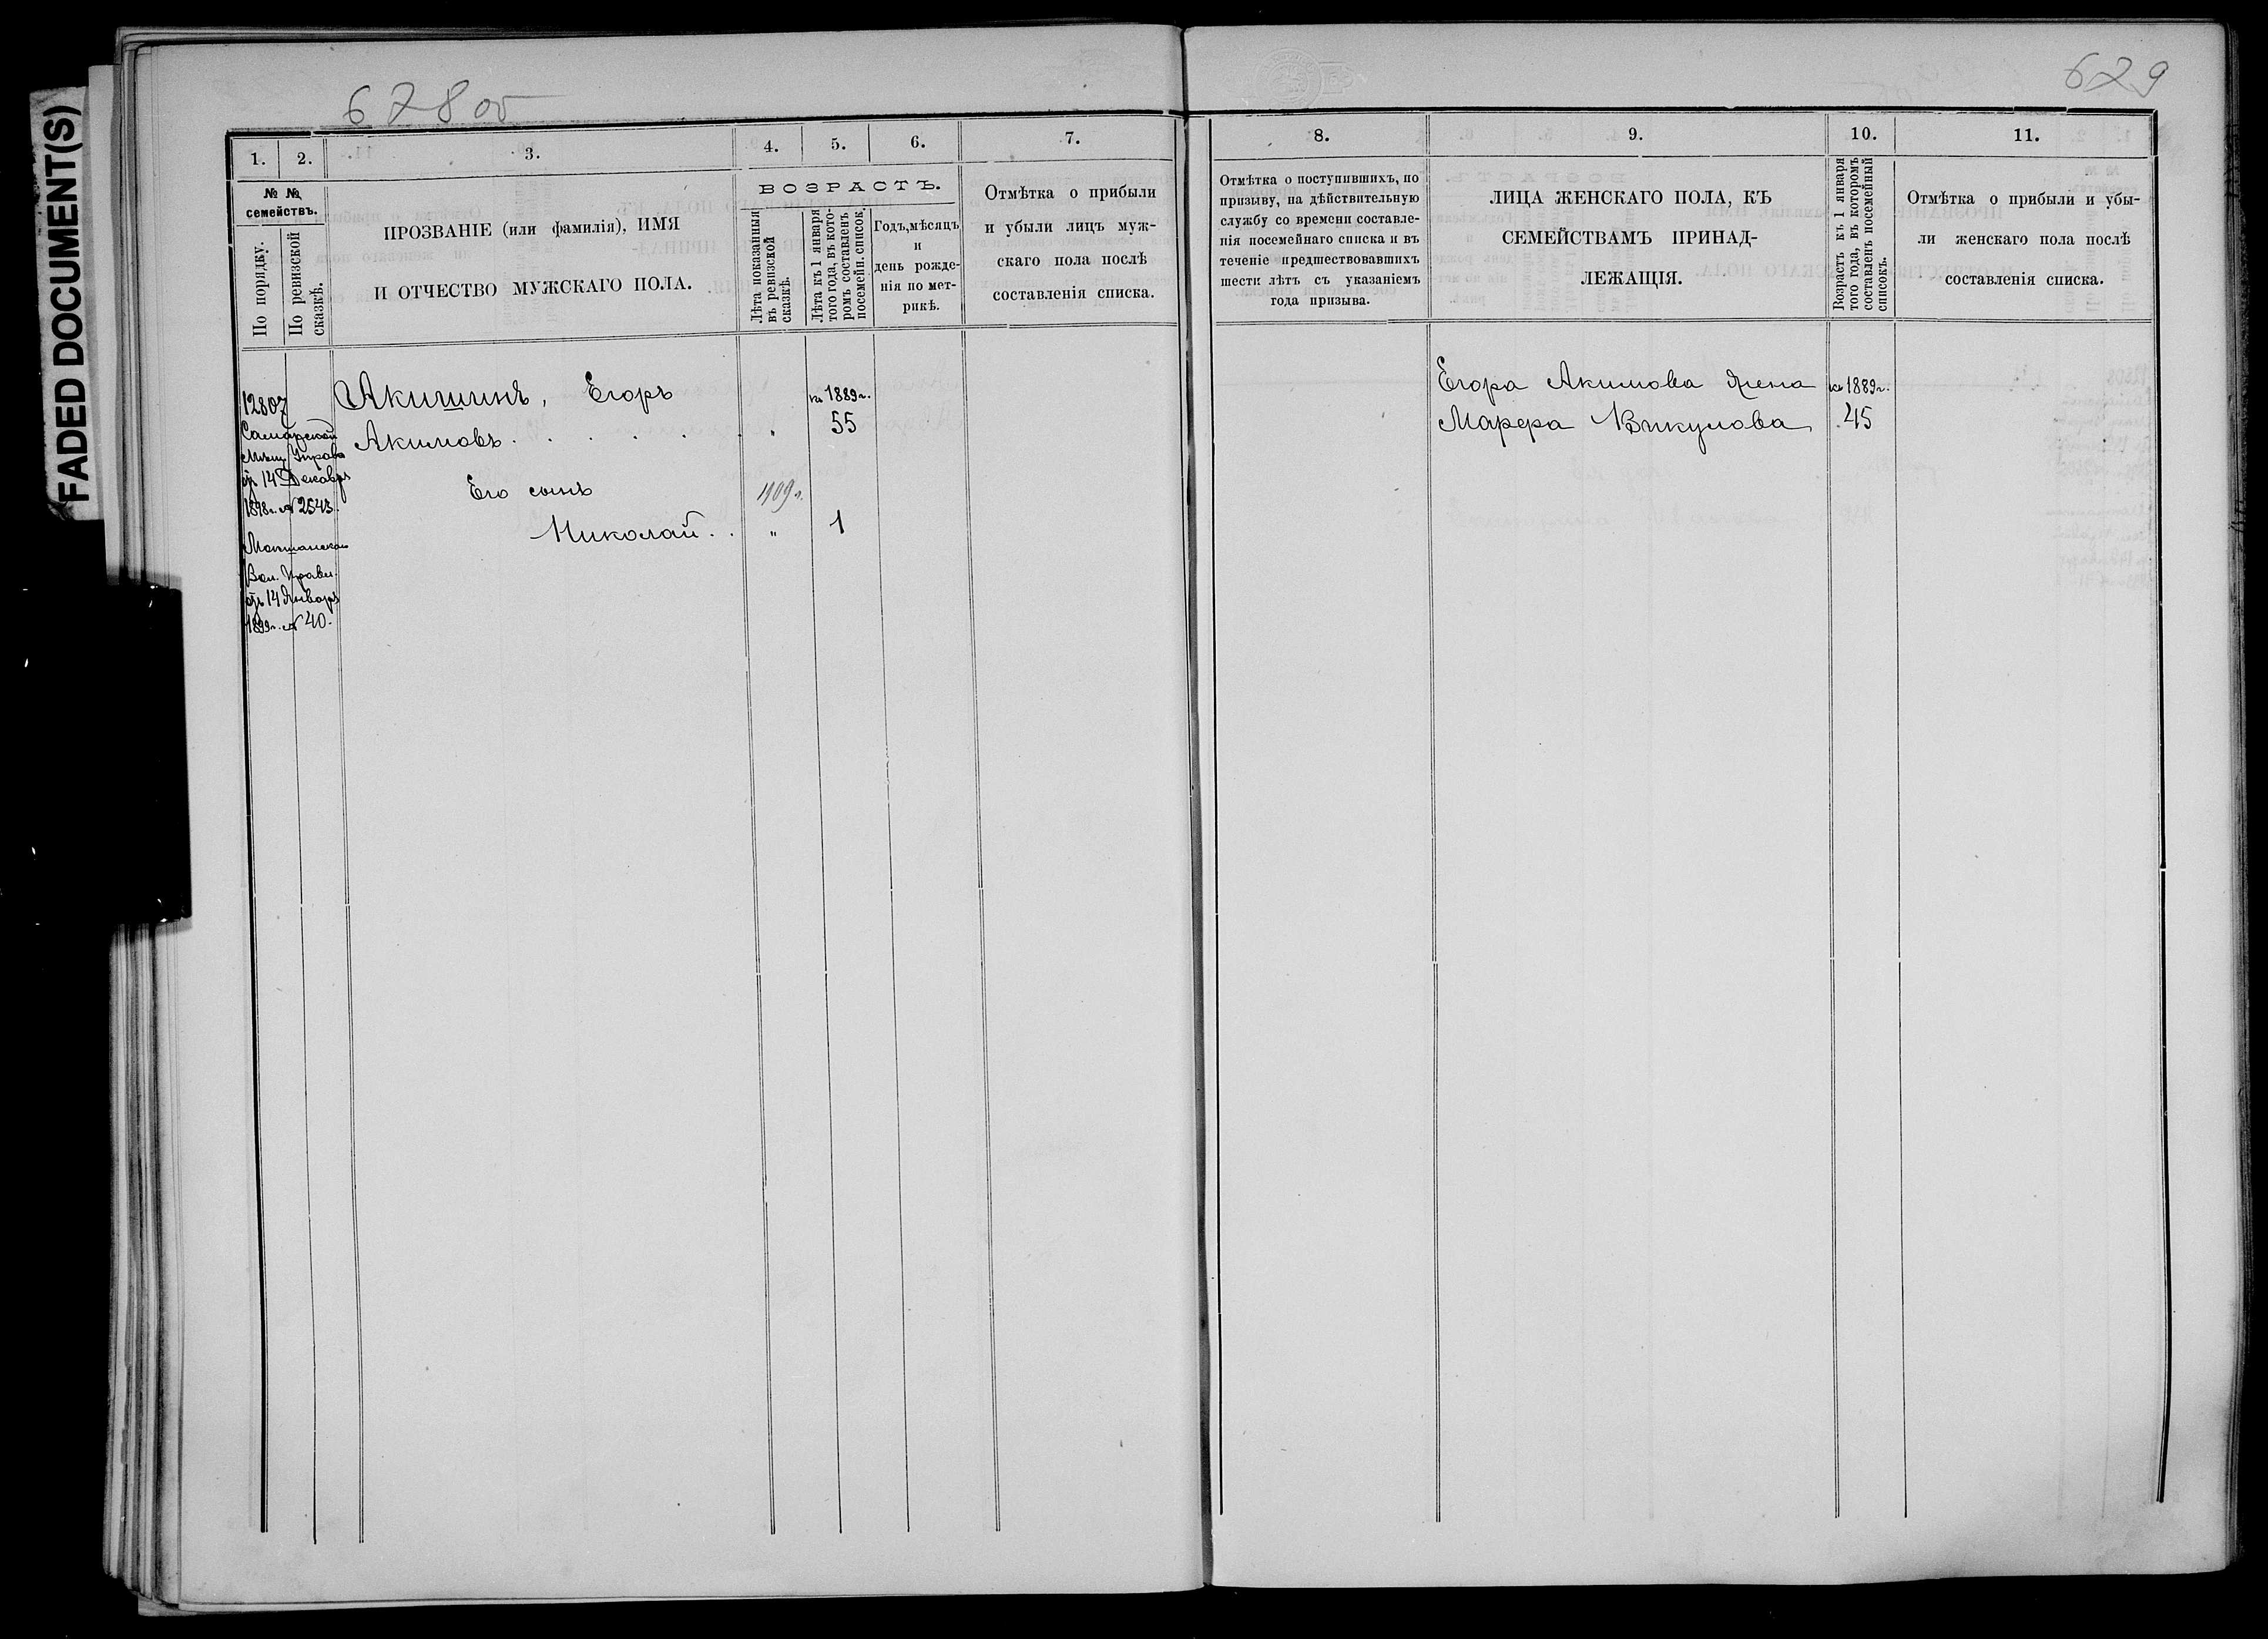 FADED DOCUMENT(S)
678 об
629
1.
2.
3.
4.
5.
6.
7.
8.
9.
10.
11.
№ №
семействъ.
По порядку.
По ревизской
сказкѣ.
ПРОЗВАНІЕ (или фамилія), ИМЯ
И ОТЧЕСТВО МУЖСКАГО ПОЛА.
ВОЗРАСТЪ.
Лѣта показанныя
въ ревизской
сказкѣ.
Лѣта къ 1 января
того года, въ кото-
ромъ составленъ
посемейн. список.
Годъ, мѣсяцъ
и
день рожде-
нія по мет-
рикѣ.
Отмѣтка о прибыли
и убыли лицъ муж-
скаго пола послѣ
составленія списка.
Отмѣтка о поступившихъ, по
призыву, на дѣйствительную
службу со времени составле-
нія посемейнаго списка и въ
теченіе предшествовавшихъ
шести лѣтъ съ указаніемъ
года призыва.
ЛИЦА ЖЕНСКАГО ПОЛА, КЪ
СЕМЕЙСТВАМЪ ПРИНАД-
ЛЕЖАЩІЯ.
Возрастъ къ 1 января
того года, въ которомъ
составленъ посемейный
списокъ.
Отмѣтка о прибыли и убы-
ли женскаго пола послѣ
составленія списка.
12807
Самарской
Мѣщ. Управы
отъ 14 Декабря
1898 г. № 2543.
Вол. Правл.
отъ 14 Января
1899 г. № 40.
Акишинъ, Егоръ
Акимовъ
къ 1889 г.
55
Его сынъ
1909 г.
Николай
"
1
Егора Акимова жена
Марфа Викулова
къ 1889 г.
45